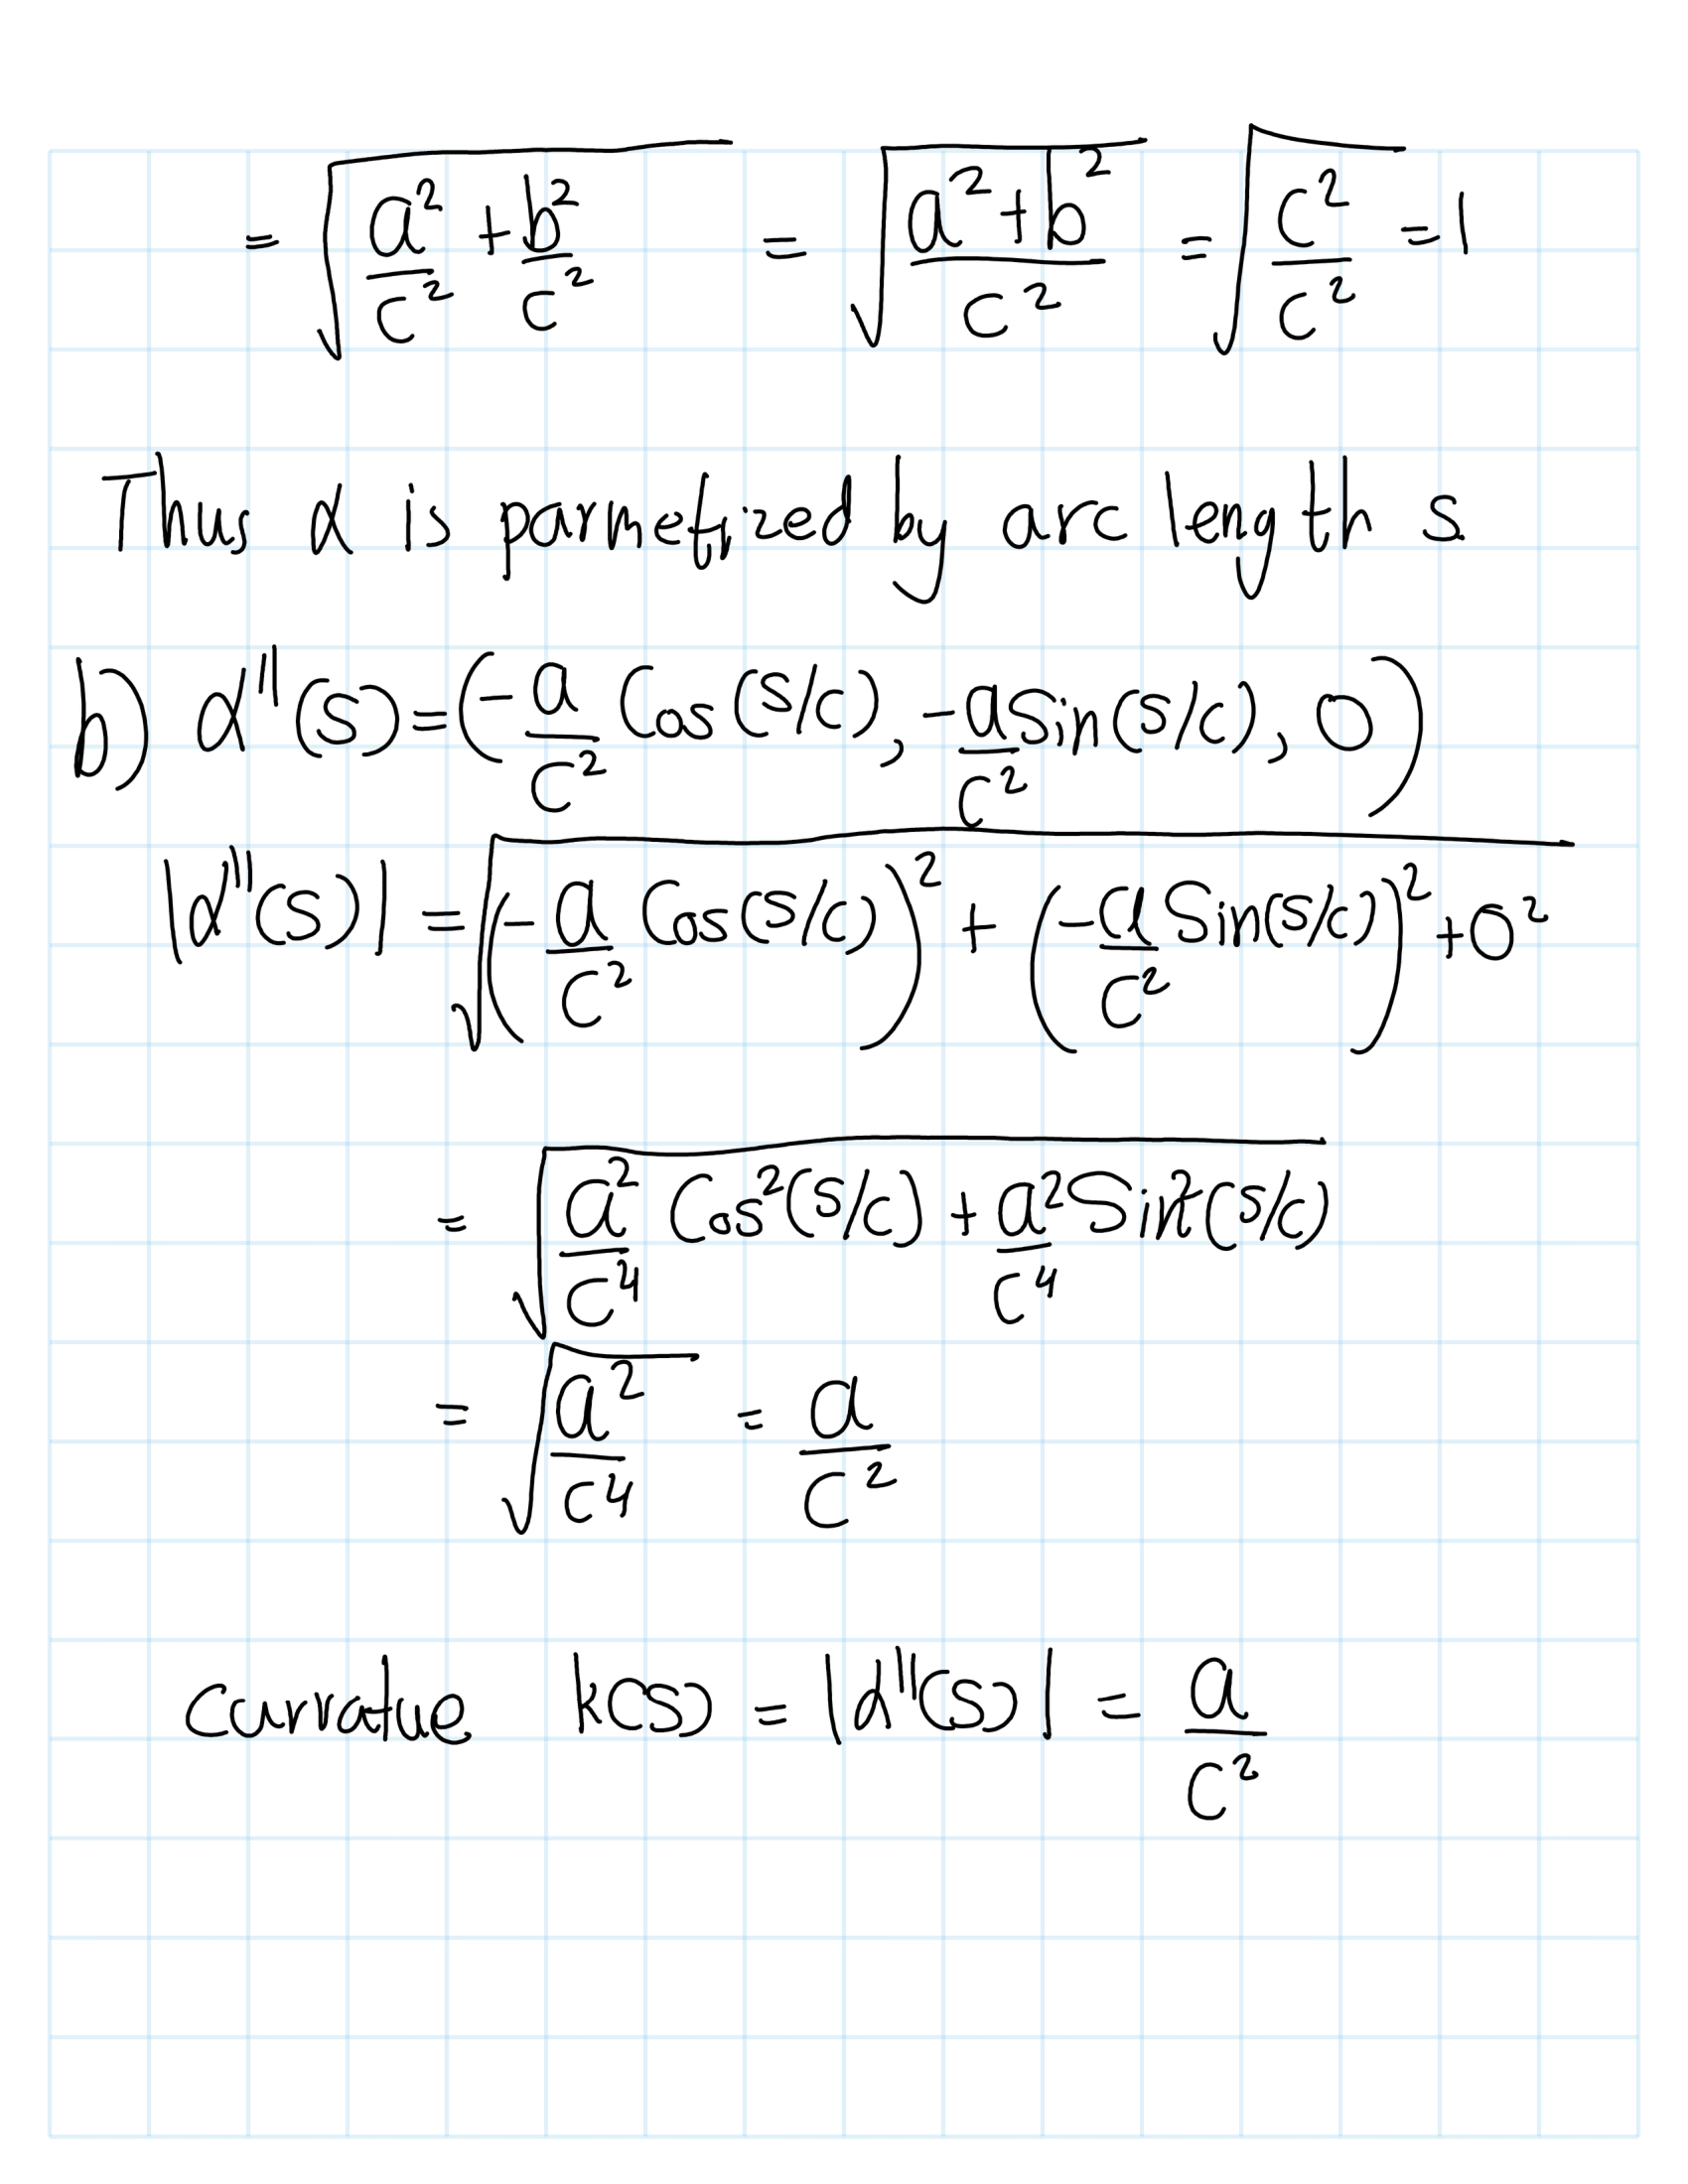 = √(a²/c² + b²/c²) = √((a²+b²)/c²) = √(c²/c²) = 1
Thus α is parmetrized by arc length s.
b) α''(s) = (-a/c² Cos(s/c), -a/c² Sin(s/c), 0)
|α''(s)| = √((-a/c² Cos(s/c))² + (-a/c² Sin(s/c))² + 0²)
= √(a²/c⁴ Cos²(s/c) + a²/c⁴ Sin²(s/c))
= √(a²/c⁴) = a/c²
curvatue k(s) = |α''(s)| = a/c²